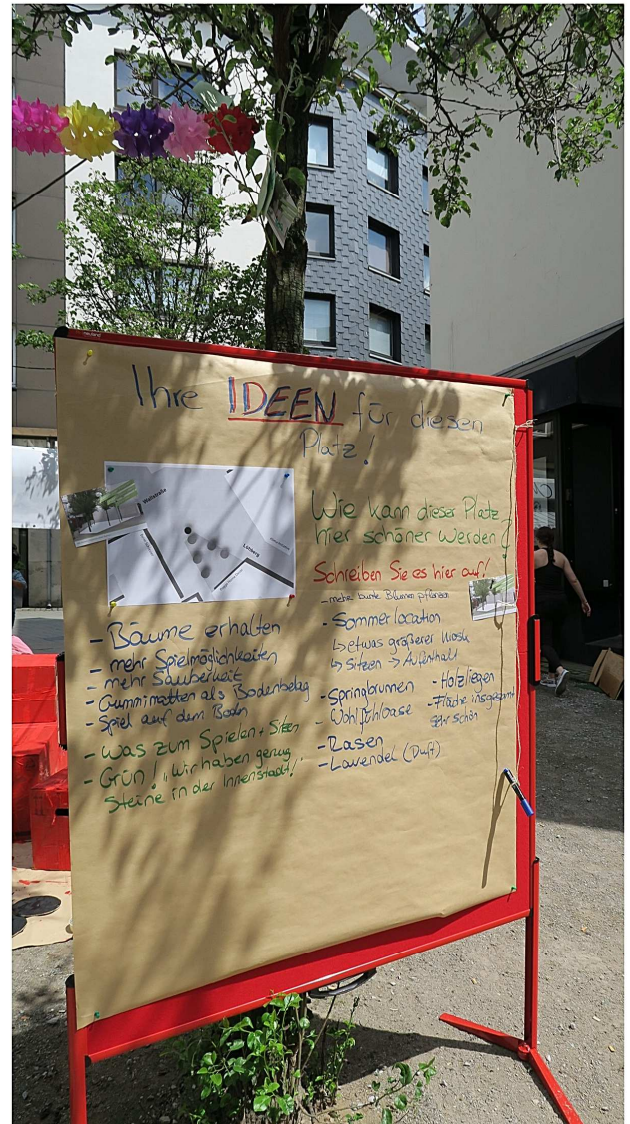 Ihre IDEEN für diesen
Platz!
Wallstraße
Lohberg
Wie kann dieser Platz
hier schöner werden
Schreiben Sie es hier auf!
- Bäume erhalten
- mehr Spielmöglichkeiten
- mehr Sauberkeit
- Gummimatten als Bodenbelag
- Spiel auf dem Boden
- Was zum Spielen + Sitzen
- Grün! "Wir haben genug
Steine in der Innenstadt!"
- mehr bunte Blumen pflanzen
- Sommerlocation
↳ etwas größerer Kiosk
↳ Sitzen → Aufenthalt
- Springbrunnen
- Wohlfühloase
- Rasen
- Lavendel (Duft)
- Holzliegen
- Fläche insgesamt
sehr schön